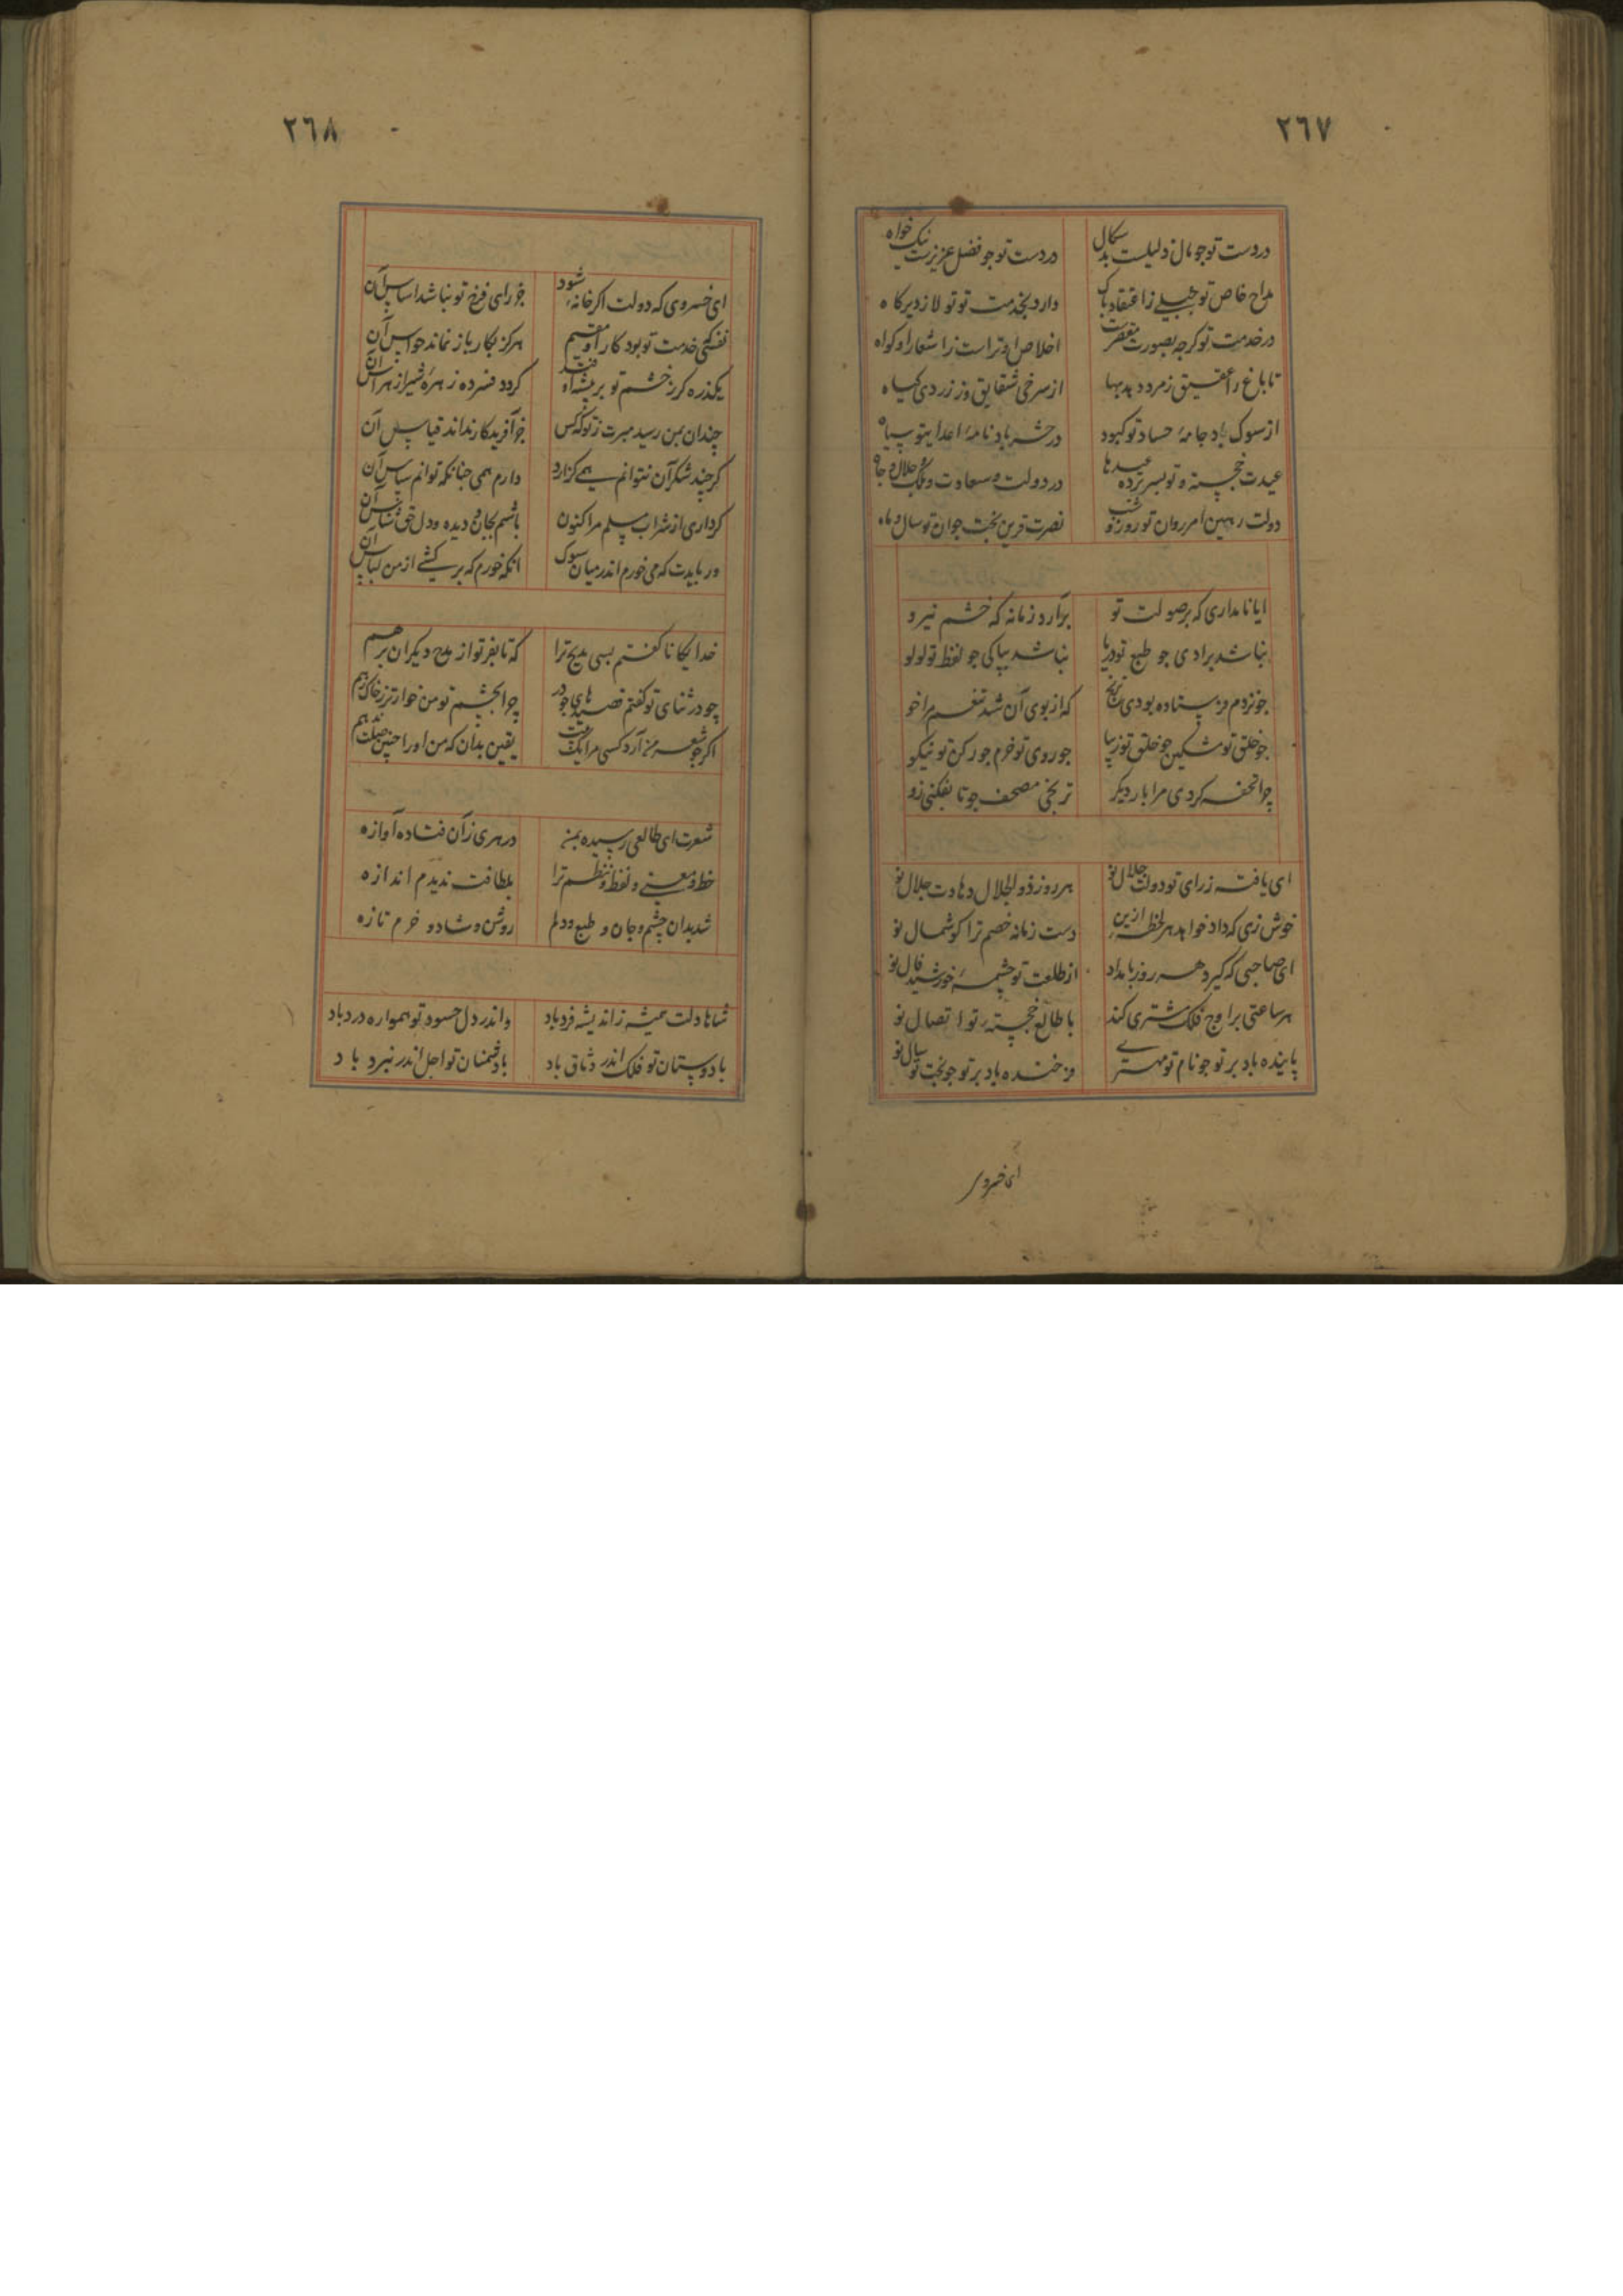 ٢٦٧
در دست تو جو مال ذلیلست بدسکال    در دست تو جو فضل عزیزست نیک خواه
مداح خاص تو جبلی ز اعتقاد پاک    دارد بخدمت تو تولا ز دیرکاه
در خدمت تو کرجه بصورت مقصرست    اخلاص او تراست ز اشعار او کواه
تا باغ را عقیق زمرد دهد بها    از سرخی شقایق وز زردی کیاه
از سوک باد جامهٔ حساد تو کبود    در حشر باد نامهٔ اعدای تو سیاه
عیدت خجسته و تو بسر برده عیدها    در دولت و سعادت و ملک و جلال و جاه
دولت رهین امر روان تو روز و شب    نصرت قرین بخت جوان تو سال و ماه
ایا نامداری که بر صولت تو    برآرد زمانه که خشم نیرو
نباشد برادی جو طبع تو دریا    نباشد بپاکی جو لفظ تو لولو
جو نزدم فرستاده بودی ترنج    که از بوی آن شد تنغم مرا خو
جو خلق تو مشکین جو خلق تو زیبا    جو روی تو خرم جو رکن تو نیکو
چرا تحفه کردی مرا بار دیکر    ترنجی مصحف جو تا بفکنی زو
ای یافته ز رای تو دولت جلال نو    هر روز ذو الجلال دهادت جلال نو
خوش زی که داد خواهد هر لحظه ازین    دست زمانه خصم ترا کوشمال نو
ای صاحبی که کیرد هر روز بامداد    از طلعت تو چشمهٔ خورشید فال نو
هر ساعتی بر اوج فلک مشتری کند    با طالع خجستهٔ تو اتصال نو
پاینده باد بر تو جو نام تو مهتری    فرخنده باد بر تو جو بخت تو سال نو
ای خسروی
٢٦٨
ای خسروی که دولت اکر خانهٔ شود    جز رای فرخ تو نباشد اساس آن
نفسی که خدمت تو بود کار او مقیم    هرکز بکار باز نماند حواس آن
یکذره کر ز خشم تو بر بیشه اوفتد    کردد فسرده زهرهٔ شیر از هراس آن
چندان بمن رسید مبرت ز تو که کس    جز آفریدکار نداند قیاس آن
کرچند شکر آن نتوانم همی کزارد    دارم همی جنانکه توانم سپاس آن
کر داری از شراب مسلم مرا کنون    باشم بجان و دیده و دل حق شناس آن
ور بایدت که می خورم اندر میان سوک    آنکه خورم که برکشی از من لباس آن
خدایکانا کفتم بسی مدیح ترا    که تا بفر تو از مدح دیکران برهم
چو در ثنای تو کفتم قصیدهای جو در    چرا بچشم تو من خوارتر ز خاک رهم
اکر جو شعر من آرد کسی مرا بکفت    یقین بدان که من او را جنین صلت ندهم
شعرت ای طالعی رسیده بمن    در هری زان فتاده آوازه
خط و معنی و لفظ و نظم ترا    بلطافت ندیدم اندازه
شد بدان چشم و جان و طبع و دلم    روشن و شاد و خرم تازه
شاها دلت همیشه ز اندیشه فرد باد    واندر دل حسود تو همواره درد باد
با دوستان تو فلک اندر وثاق باد    با دشمنان تو اجل اندر نبرد باد